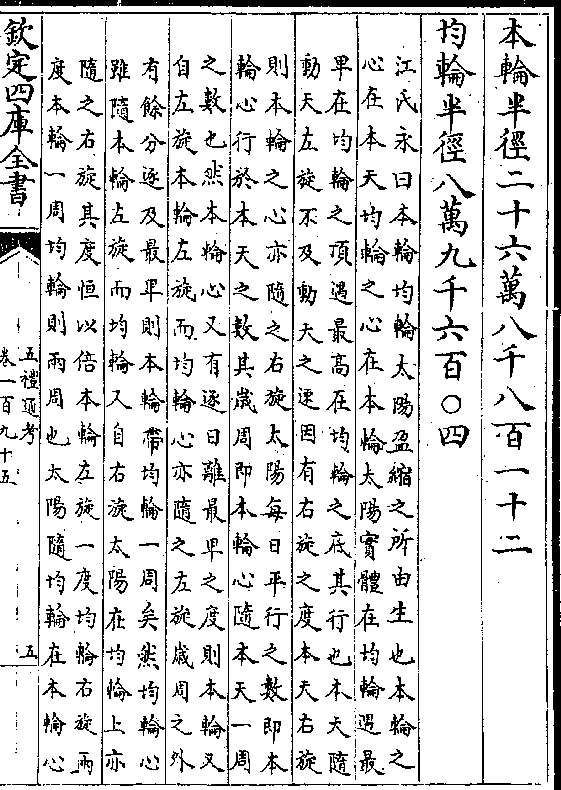 本輪半徑二十六萬八千八百一十二
均輪半徑八萬九千六百〇四
江氏永曰本輪均輪太陽盈縮之所由生也本輪之
心在本天均輪之心在本輪太陽實體在均輪遇最
卑在均輪之頂遇最高在均輪之底其行也本天隨
動天左旋不及動天之速因有右旋之度本天右旋
則本輪之心亦隨之右旋太陽每日平行之數即本
輪心行於本天之數其歲周即本輪心隨本天一周
之數也然本輪心又有逐日離最卑之度則本輪又
自左旋本輪左旋而均輪心亦隨之左旋歲周之外
有餘分逐及最卑則本輪帶均輪一周矣然均輪心
雖隨本輪左旋而均輪又自右旋太陽在均輪上亦
隨之右旋其度恒以倍本輪左旋一度均輪右旋兩
度本輪一周均輪則兩周也太陽隨均輪在本輪心
欽定四庫全書
五禮通考
卷一百九十五
五